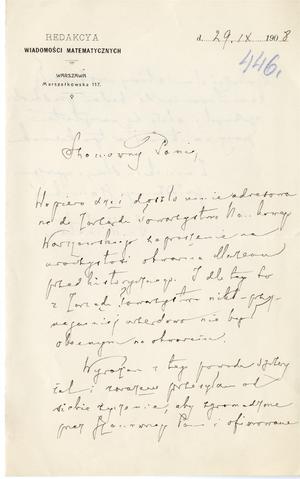 REDAKCYA
WIADOMOŚCI MATEMATYCZNYCH
WARSZAWA
Marszałkowska 117.
d. 29. IX 1908
446.
Szanowny Panie,
Dopiero dziś doszło mnie adresowa
ne do Zarządu Towarzystwa Naukowego
Warszawskiego zaproszenie na
uroczystość otwarcia Muzeum
przedhistorycznego. I dla tego to
z Zarządu Towarzystwa nikt
nie był
obecnym na otwarciu.
Wyrażam z tego powodu szczery
żal i zarazem przesyłam od
siebie życzenia, aby zgromadzone
przez Szanownego Pana i ofiarowane